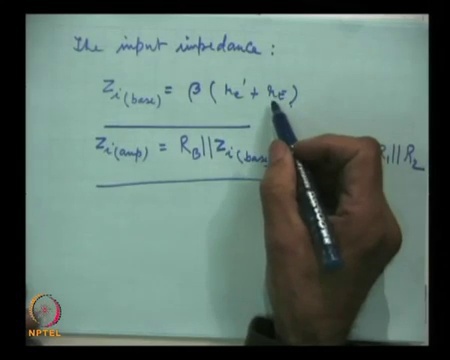 The input impedance :
Zi(base) = β ( re' + rE )
Zi(amp) = RB || Zi(base R1 || R2
NPTEL